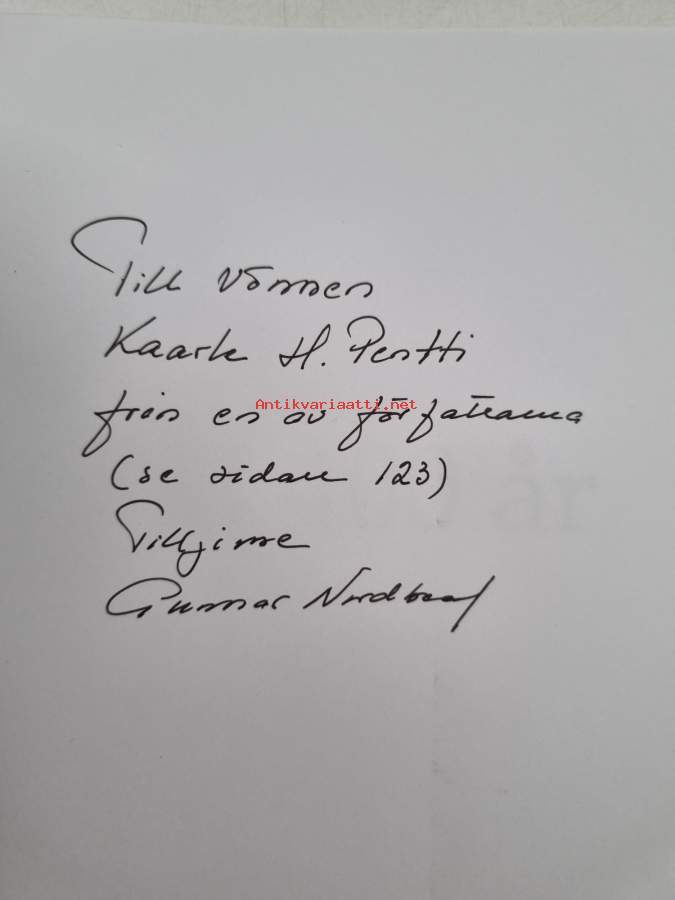 Till vännen
Kaarle H. Pentti
Antikvariaatti.net
från en av författarna
(se sidan 123)
Tillgivne
Gunnar